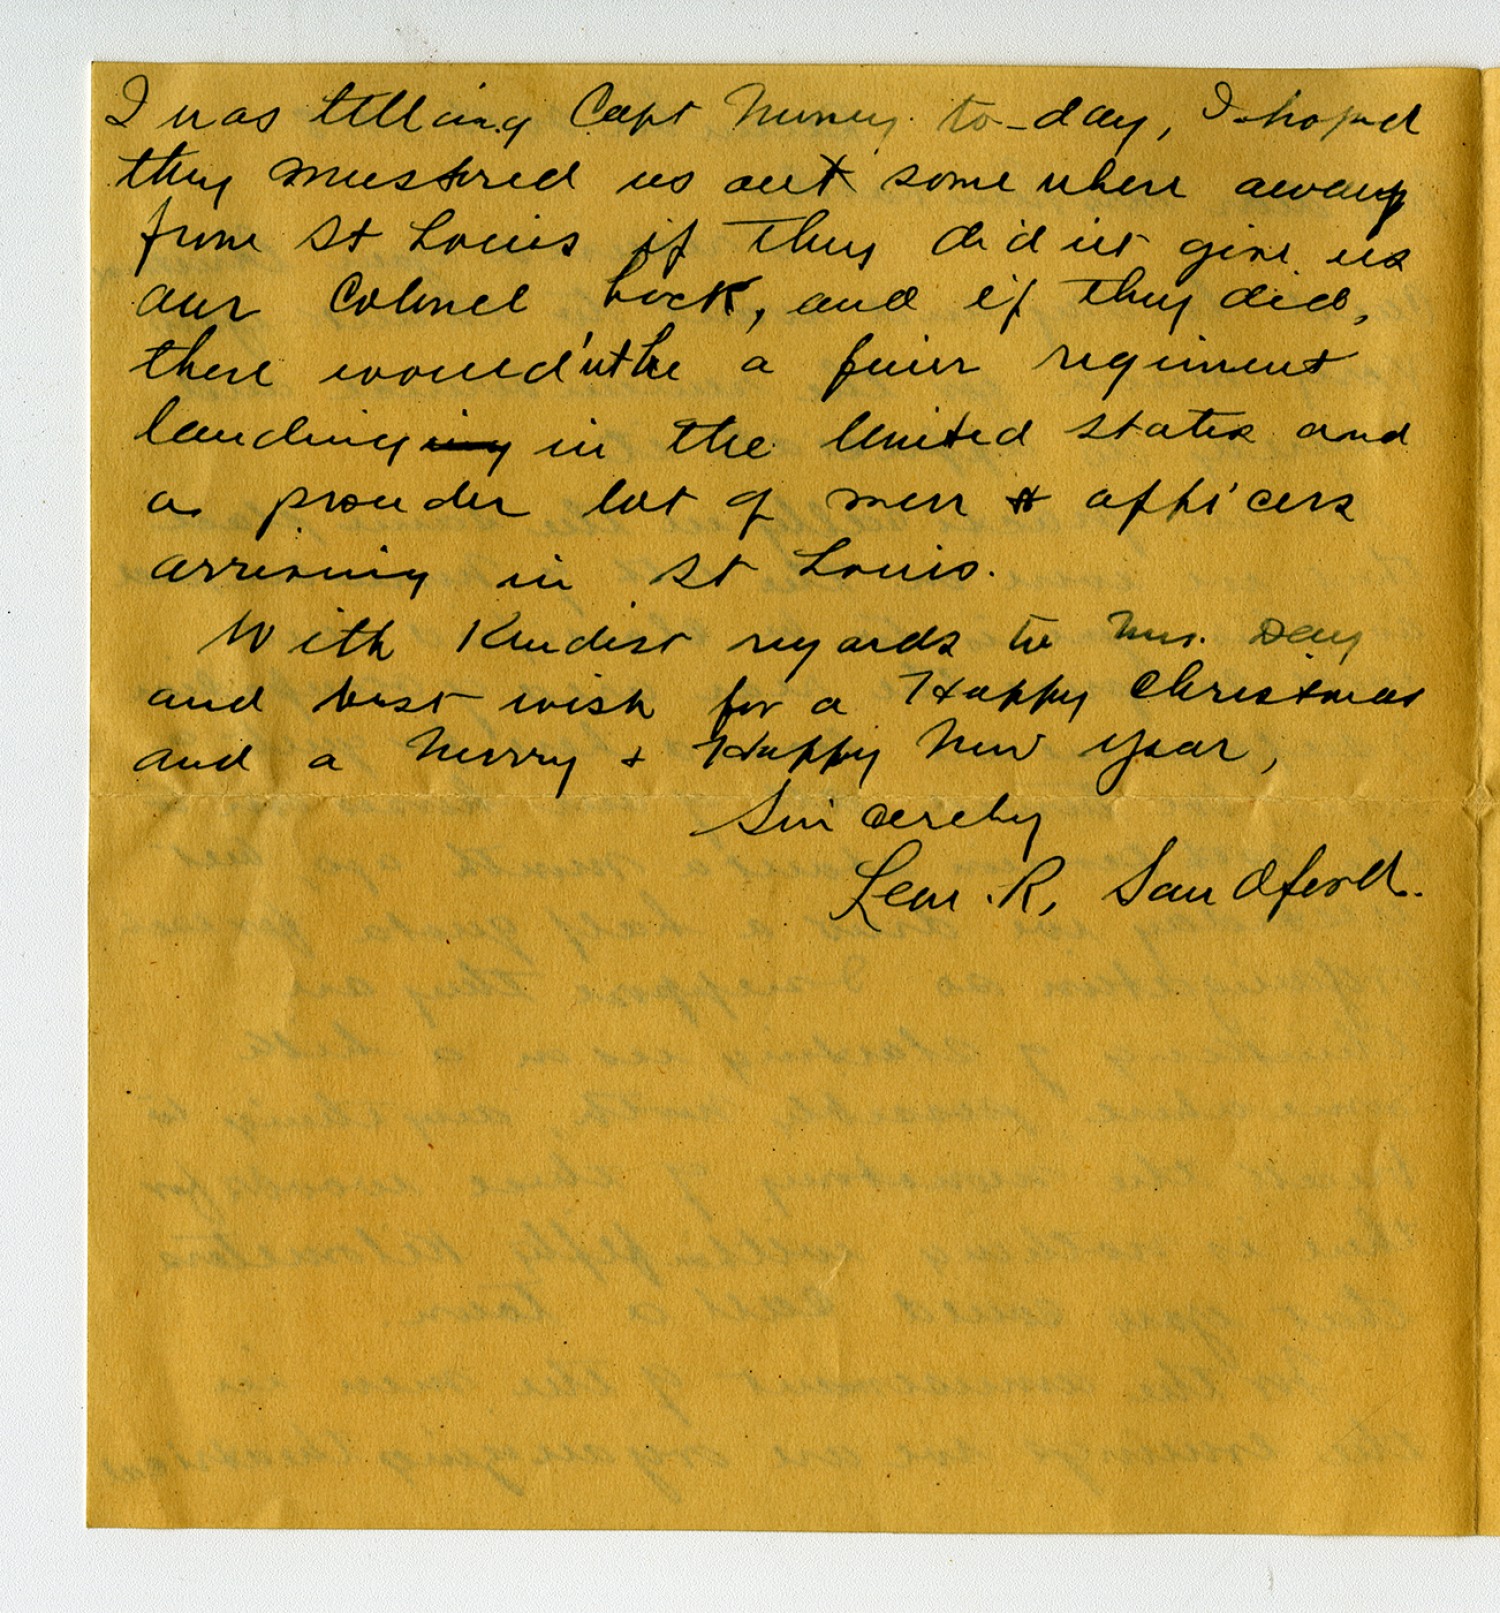 I was telling Capt to-day, I hoped
they mustered us out some where away
from St Louis if they did nt give us
our Colonel back, and if they did,
there would'nt be a finer regiment
landing in the United States and
a prouder lot of men & officers
arriving in St Louis.
With Kindest regards to Mrs. Day
and best wish for a Happy Christmas
and a Merry & Happy New Year,
Sincerely
R. Sandford.